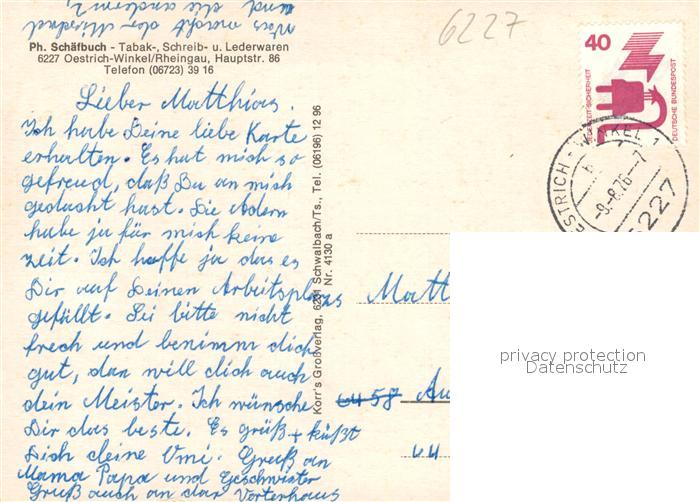 Was macht der Michael
und die anderen?
Ph. Schäfbuch - Tabak-, Schreib- u. Lederwaren
6227 Oestrich-Winkel/Rheingau, Hauptstr. 86
Telefon (06723) 39 16
Lieber Matthias.
Ich habe Deine liebe Karte
erhalten. Es hat mich so
gefreud, daß Du an mich
gedacht hast. Die Adern
habe ja für mich keine
zeit. Ich hoffe ja das es
Dir auf Deinen Arbeitsplazs
gefällt. Sei bitte nicht
frech und benimm dich
gut, dan will dich auch
dein Meister. Ich wünsche
Dir das beste. Es grüß + küßt
Dich deine Omi. Gruß an
Mama Papa und Geschwister
Gruß auch an das Vorterhaus
Korr's Großverlag, 6231 Schwalbach/Ts., Tel. (06196) 12 96
Nr. 4130 a
6227
40
JEDERZEIT SICHERHEIT
DEUTSCHE BUNDESPOST
OESTRICH-WINKEL 1
-9.-8.76--7
6227
Matt
6458 Au
64
privacy protection
Datenschutz